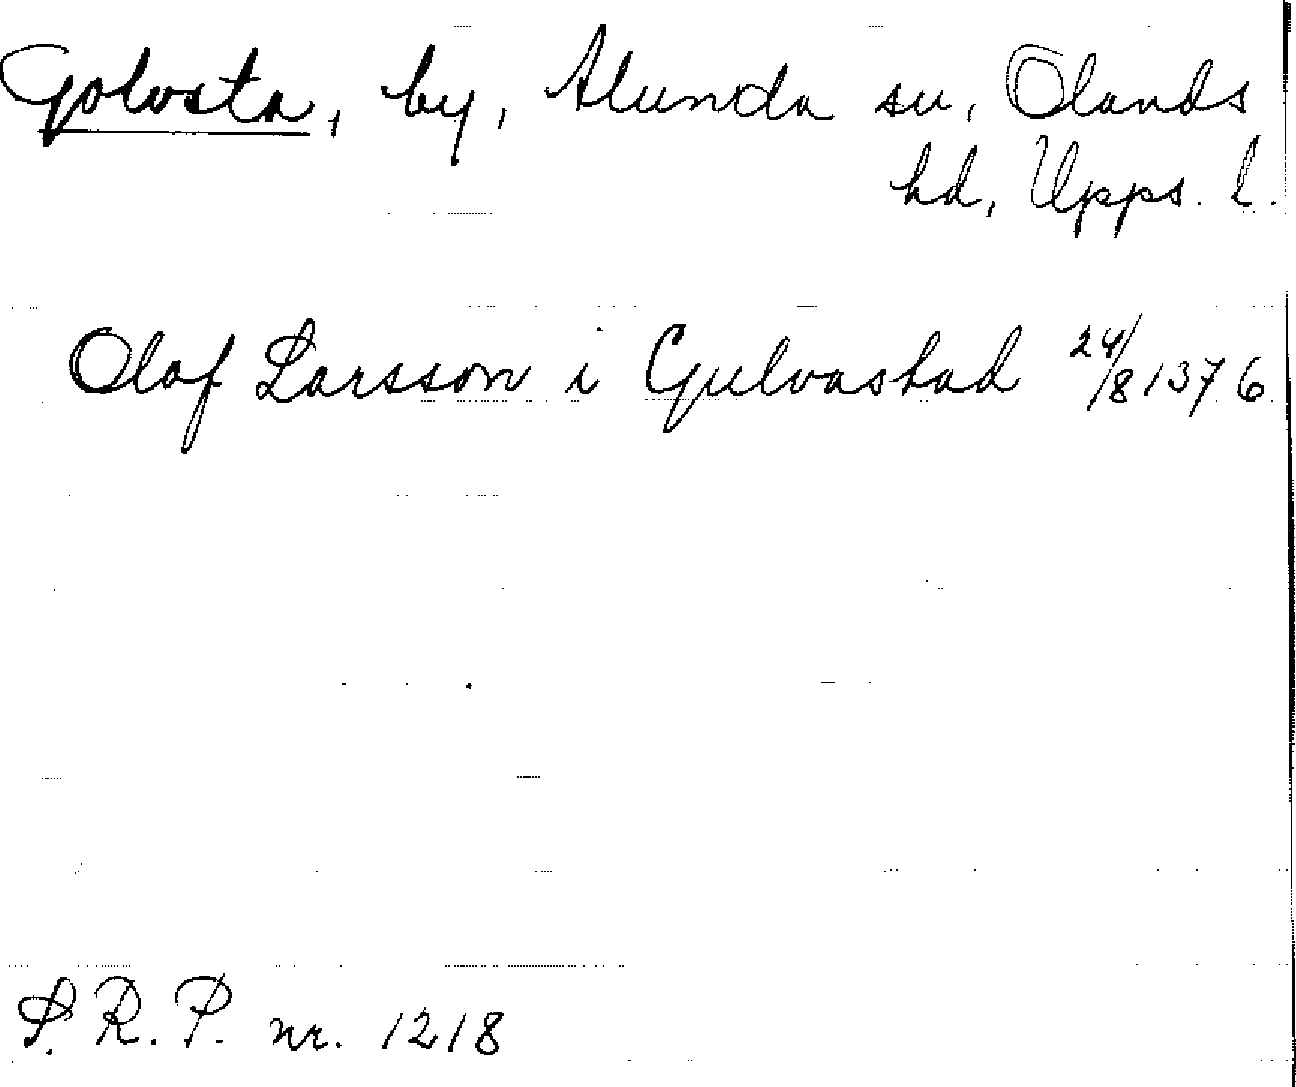 Golvsta, by, Alunda sn, Olands
hd, Upps. l.
Olaf Larsson i Gulvastad 24/8 1376
S. R. P. nr. 1218